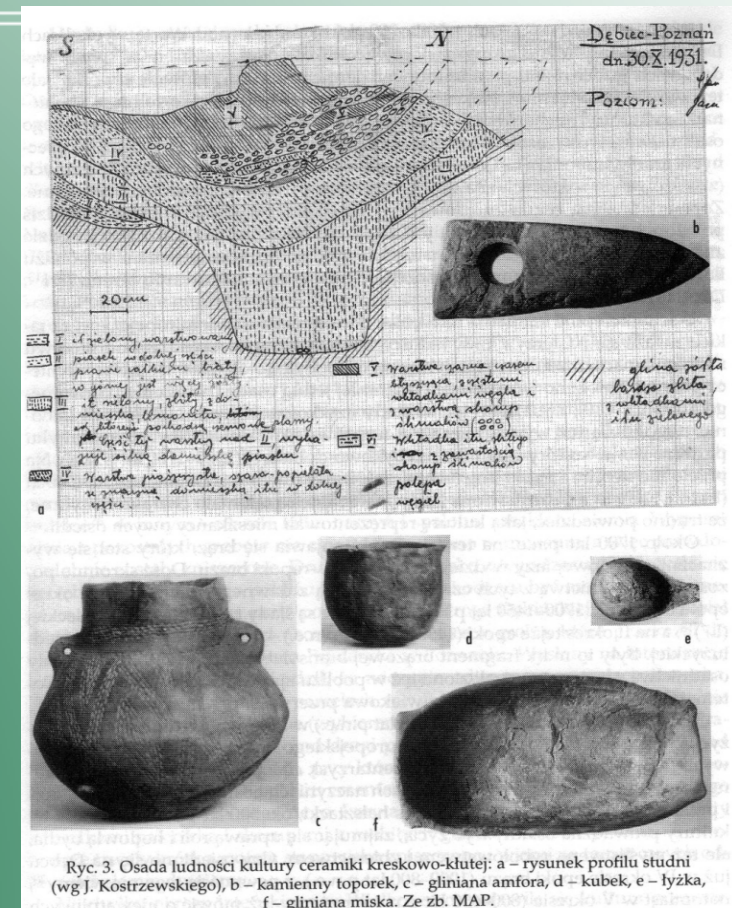 S
N
Dębiec-Poznań
dn. 30.X.1931.
Poziom:
V
V
IV
IV
III
III
II
b
20cm
I ił zielony, warstwowany
II piasek w dolnej części
prawie całkiem biały,
w górnej jest więcej żółty.
III ił zielony, zbity z do-
mieszką
od którego pochodzą plamy.
część tej warstwy nad II, wyka-
zuje silną domieszkę piasku
IV. Warstwa piaszczysta, szara-popielata
z znaczną domieszką iłu w dolnej
części.
V. Warstwa czarna czasem
błyszcząca, z częstemi
wkładkami węgla i
z warstwą skorup
ślimaków
VI Wkładka iłu żółtego
z zawartością
skorup ślimaków
polepa
węgiel
glina żółta
bardzo zbita,
z wkładkami
iłu zielonego
a
d
e
c
f
Ryc. 3. Osada ludności kultury ceramiki kreskowo-kłutej: a – rysunek profilu studni
(wg J. Kostrzewskiego), b – kamienny toporek, c – gliniana amfora, d – kubek, e – łyżka,
f – gliniana miska. Ze zb. MAP.